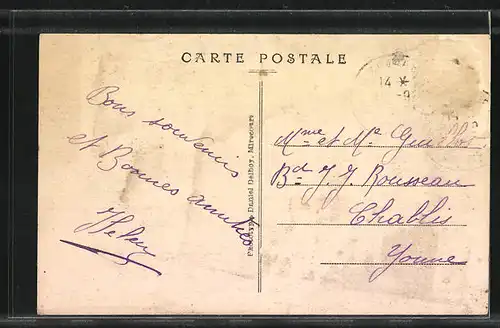 CARTE POSTALE
14 *
Bons souvenirs
et Bonnes amitiés
Phototypie Daniel Delboy, Mirecourt
Mme et Mr
Bd J. J. Rousseau
Chablis
Yonne